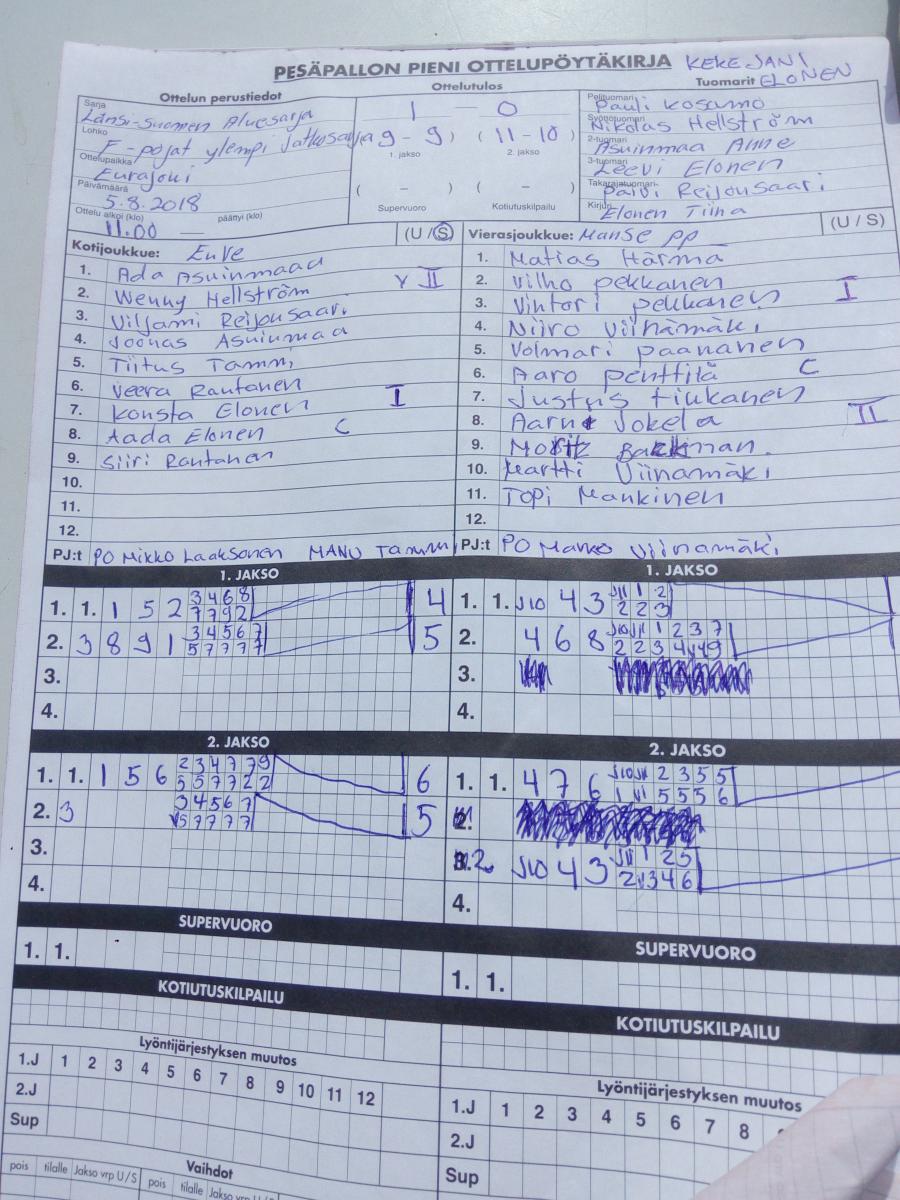 PESÄPALLON PIENI OTTELUPÖYTÄKIRJA KEKE JANI
Ottelun perustiedot Ottelutulos Tuomarit ELONEN
Sarja
Länsi-Suomen Aluesarja
Lohko
F-pojat ylempi jatkosarja
Ottelupaikka
Eurajoki
Päivämäärä
5.8.2018
Ottelu alkoi (klo) päättyi (klo)
11.00 —
1 — 0
9 - 9) (11 - 10
1. jakso 2. jakso
( - ) ( - )
Supervuoro Kotiutuskilpailu
Pelituomari
Pauli Kosamo
Syöttötuomari
Nikolas Hellström
2-tuomari
Asuinmaa Anne
3-tuomari
Leevi Elonen
Takarajatuomari
Päivi Reijonsaari
Kirjuri
Elonen Tiina
Kotijoukkue: EuVe (U / S)
1. Ada Asuinmaa
2. Wenny Hellström Y II
3. Viljami Reijonsaari
4. Joonas Asuinmaa
5. Tiitus Tammi
6. Veera Rantanen
7. Konsta Elonen I
8. Aada Elonen C
9. Siiri Rantanen
10.
11.
12.
PJ:t PO Mikko Laaksonen MANU Tammi
Vierasjoukkue: Manse PP (U / S)
1. Matias Härmä
2. Vilho Pekkanen
3. Vintori Pekkanen I
4. Niiro Viinämäki
5. Volmari Paananen
6. Aaro Penttilä C
7. Justus Tiukanen
8. Aarni Jokela II
9. Moritz Backman
10. Martti Viinamäki
11. Topi Mankinen
12.
PJ:t PO Marko Viinamäki
1. JAKSO
1. 1. 1 5 2 3 4 6 8 4
7 7 9 2
2. 3 8 9 1 3 4 5 6 7 5
5 7 7 7 7
3.
4.
1. JAKSO
1. 1. J10 4 3 J11 1 2
2 2 3
2. 4 6 8 J10 J11 1 2 3 7
2 2 3 4 49
3.
4.
2. JAKSO
1. 1. 1 5 6 2 3 4 7 7 9 6
5 5 7 7 2 2
2. 3 3 4 5 6 7 5
5 7 7 7 7
3.
4.
2. JAKSO
1. 1. 4 7 6 J10 J11 2 3 5 5
1 5 5 5 6
2.
2 J10 4 3 J11 1 2 5
2 3 4 6
4.
SUPERVUORO
1. 1.
KOTIUTUSKILPAILU
Lyöntijärjestyksen muutos
1.J 1 2 3 4 5 6 7 8 9 10 11 12
2.J
Sup
Vaihdot
pois tilalle Jakso vrp U/S pois tilalle Jakso vrp U/S
SUPERVUORO
1. 1.
KOTIUTUSKILPAILU
Lyöntijärjestyksen muutos
1.J 1 2 3 4 5 6 7 8
2.J
Sup